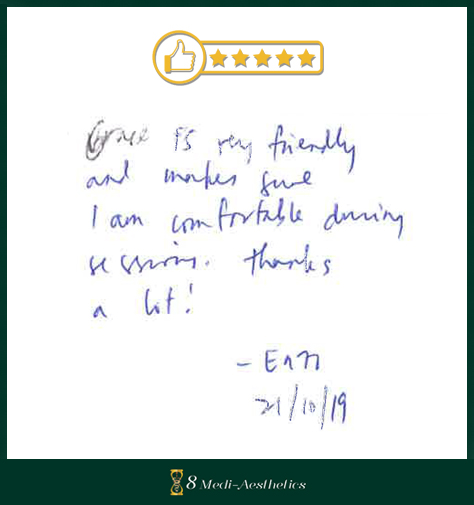 Grace is very friendly
and makes sure
I am comfortable during
sessions. Thanks
a lot!
21/10/19
8 Medi-Aesthetics